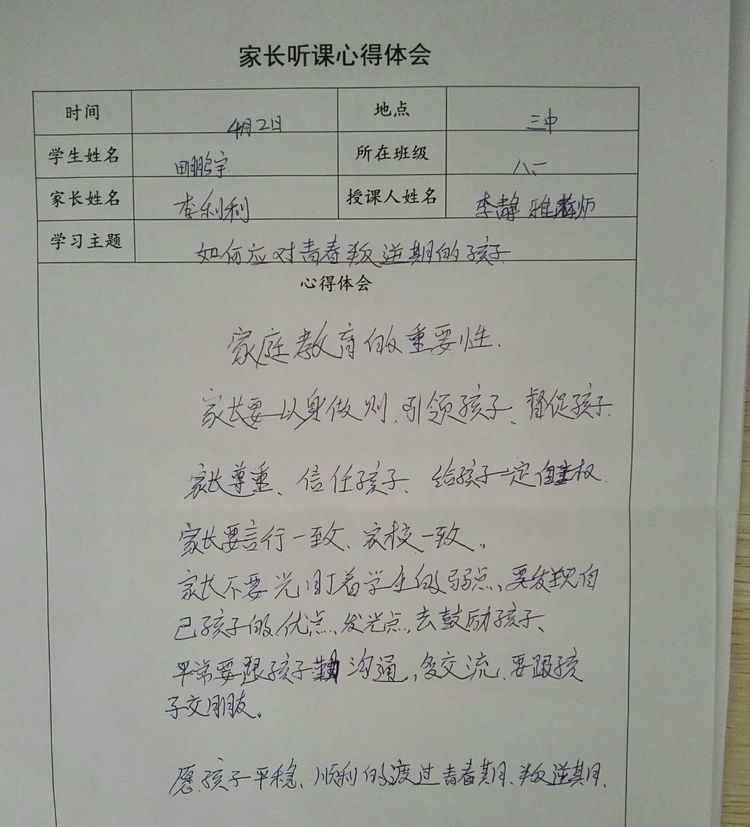 家长听课心得体会
时间 4月2日 地点 三中
学生姓名 田鹏宇 所在班级 八.一
家长姓名 李利利 授课人姓名 李静雅老师
学习主题 如何应对青春叛逆期的孩子
心得体会
家庭教育的重要性.
家长要以身做则、引领孩子、督促孩子.
家长尊重、信任孩子、给孩子一定自主权.
家长要言行一致、家校一致。
家长不要光盯着学生的弱点、要发现自
己孩子的优点、发光点,去鼓励孩子、
平常要跟孩子勤沟通,多交流、要跟孩
子交朋友。
愿孩子平稳、顺利的渡过青春期、叛逆期.